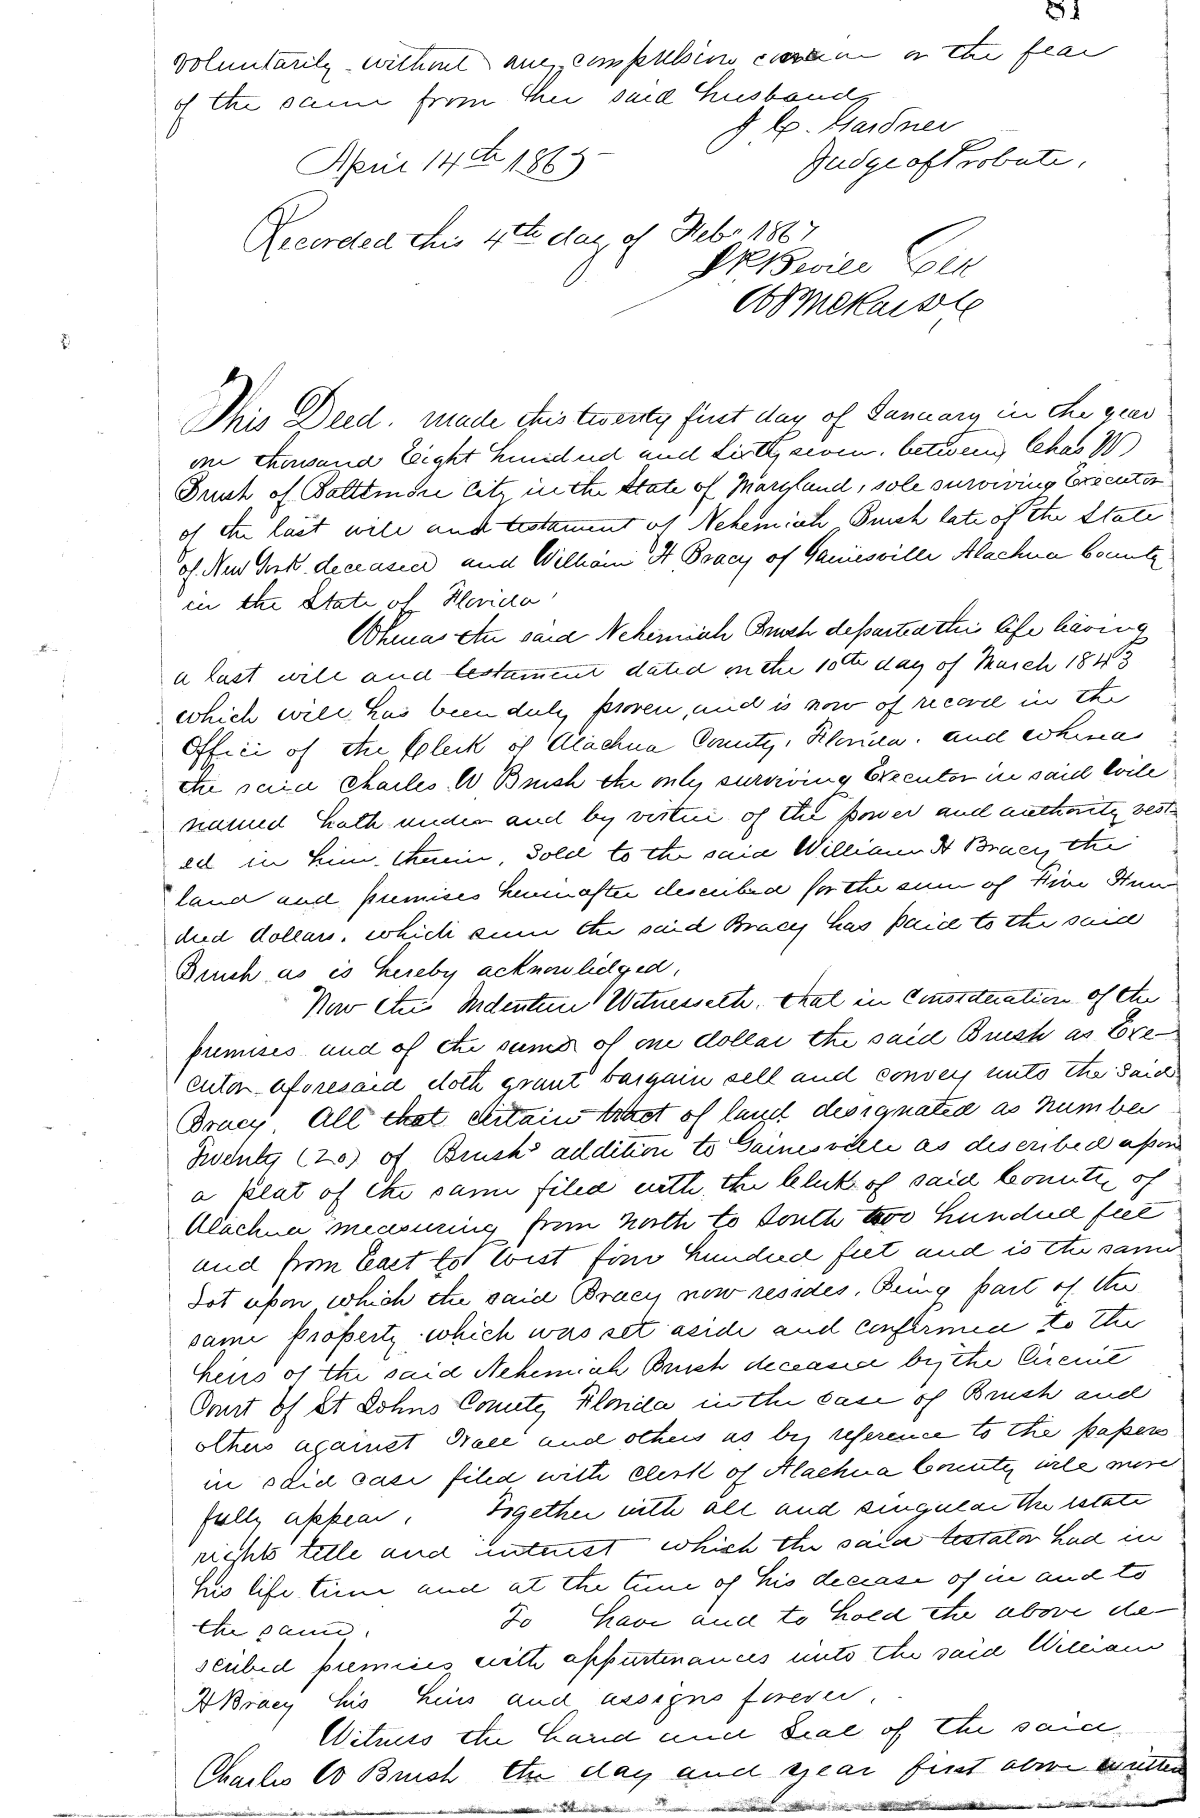 81
voluntarily without any compulsion or the fear
of the same from her said husband
J. C. Gardner
April 14th 1865
Judge of Probate.
Recorded this 4th day of Feb. 1867
Clk
This Deed. made this twenty first day of January in the year
one thousand Eight hundred and Sixty seven. between Chas W
Brush of Baltimore City in the State of Maryland, sole surviving Executor
of the last will and testament of Nehemiah Brush late of the State
of New York deceased and William H Bracy of Gainesville Alachua County
in the State of Florida
Whereas the said Nehemiah Brush departed this life having
a last will and testament dated on the 10th day of March 1843
which will has been duly proven, and is now of record in the
Office of the Clerk of Alachua County, Florida. and whereas
the said Charles W Brush the only surviving Executor in said Will
named hath under and by virtue of the power and authority vest-
ed in him therein, Sold to the said William H Bracy the
land and premises hereinafter described for the sum of Five Hun
dred dollars. which sum the said Bracy has paid to the said
Brush as is hereby acknowledged.
Now this Indenture Witnesseth. that in Consideration of the
premises and of the sum of one dollar the said Brush as Exe-
cutor aforesaid doth grant bargain sell and convey unto the said
Bracy. All that certain tract of land designated as Number
Twenty (20) of Brush's addition to Gainesville as described upon
a plat of the same filed with the Clerk of said County of
Alachua measuring from North to South two hundred feet
and from East to West four hundred feet and is the same
Lot upon which the said Bracy now resides. Being part of the
same property which was set aside and confirmed to the
heirs of the said Nehemiah Brush deceased by the Circuit
Court of St Johns County Florida in the case of Brush and
others against Hall and others as by reference to the papers
in said case filed with Clerk of Alachua County will more
fully appear. Together with all and singular the estate
rights title and interest which the said testator had in
his life time and at the time of his decease of in and to
the same. To have and to hold the above de-
scribed premises with appurtenances unto the said William
H Bracy his heirs and assigns forever.
Witness the hand and Seal of the said
Charles W Brush the day and year first above written